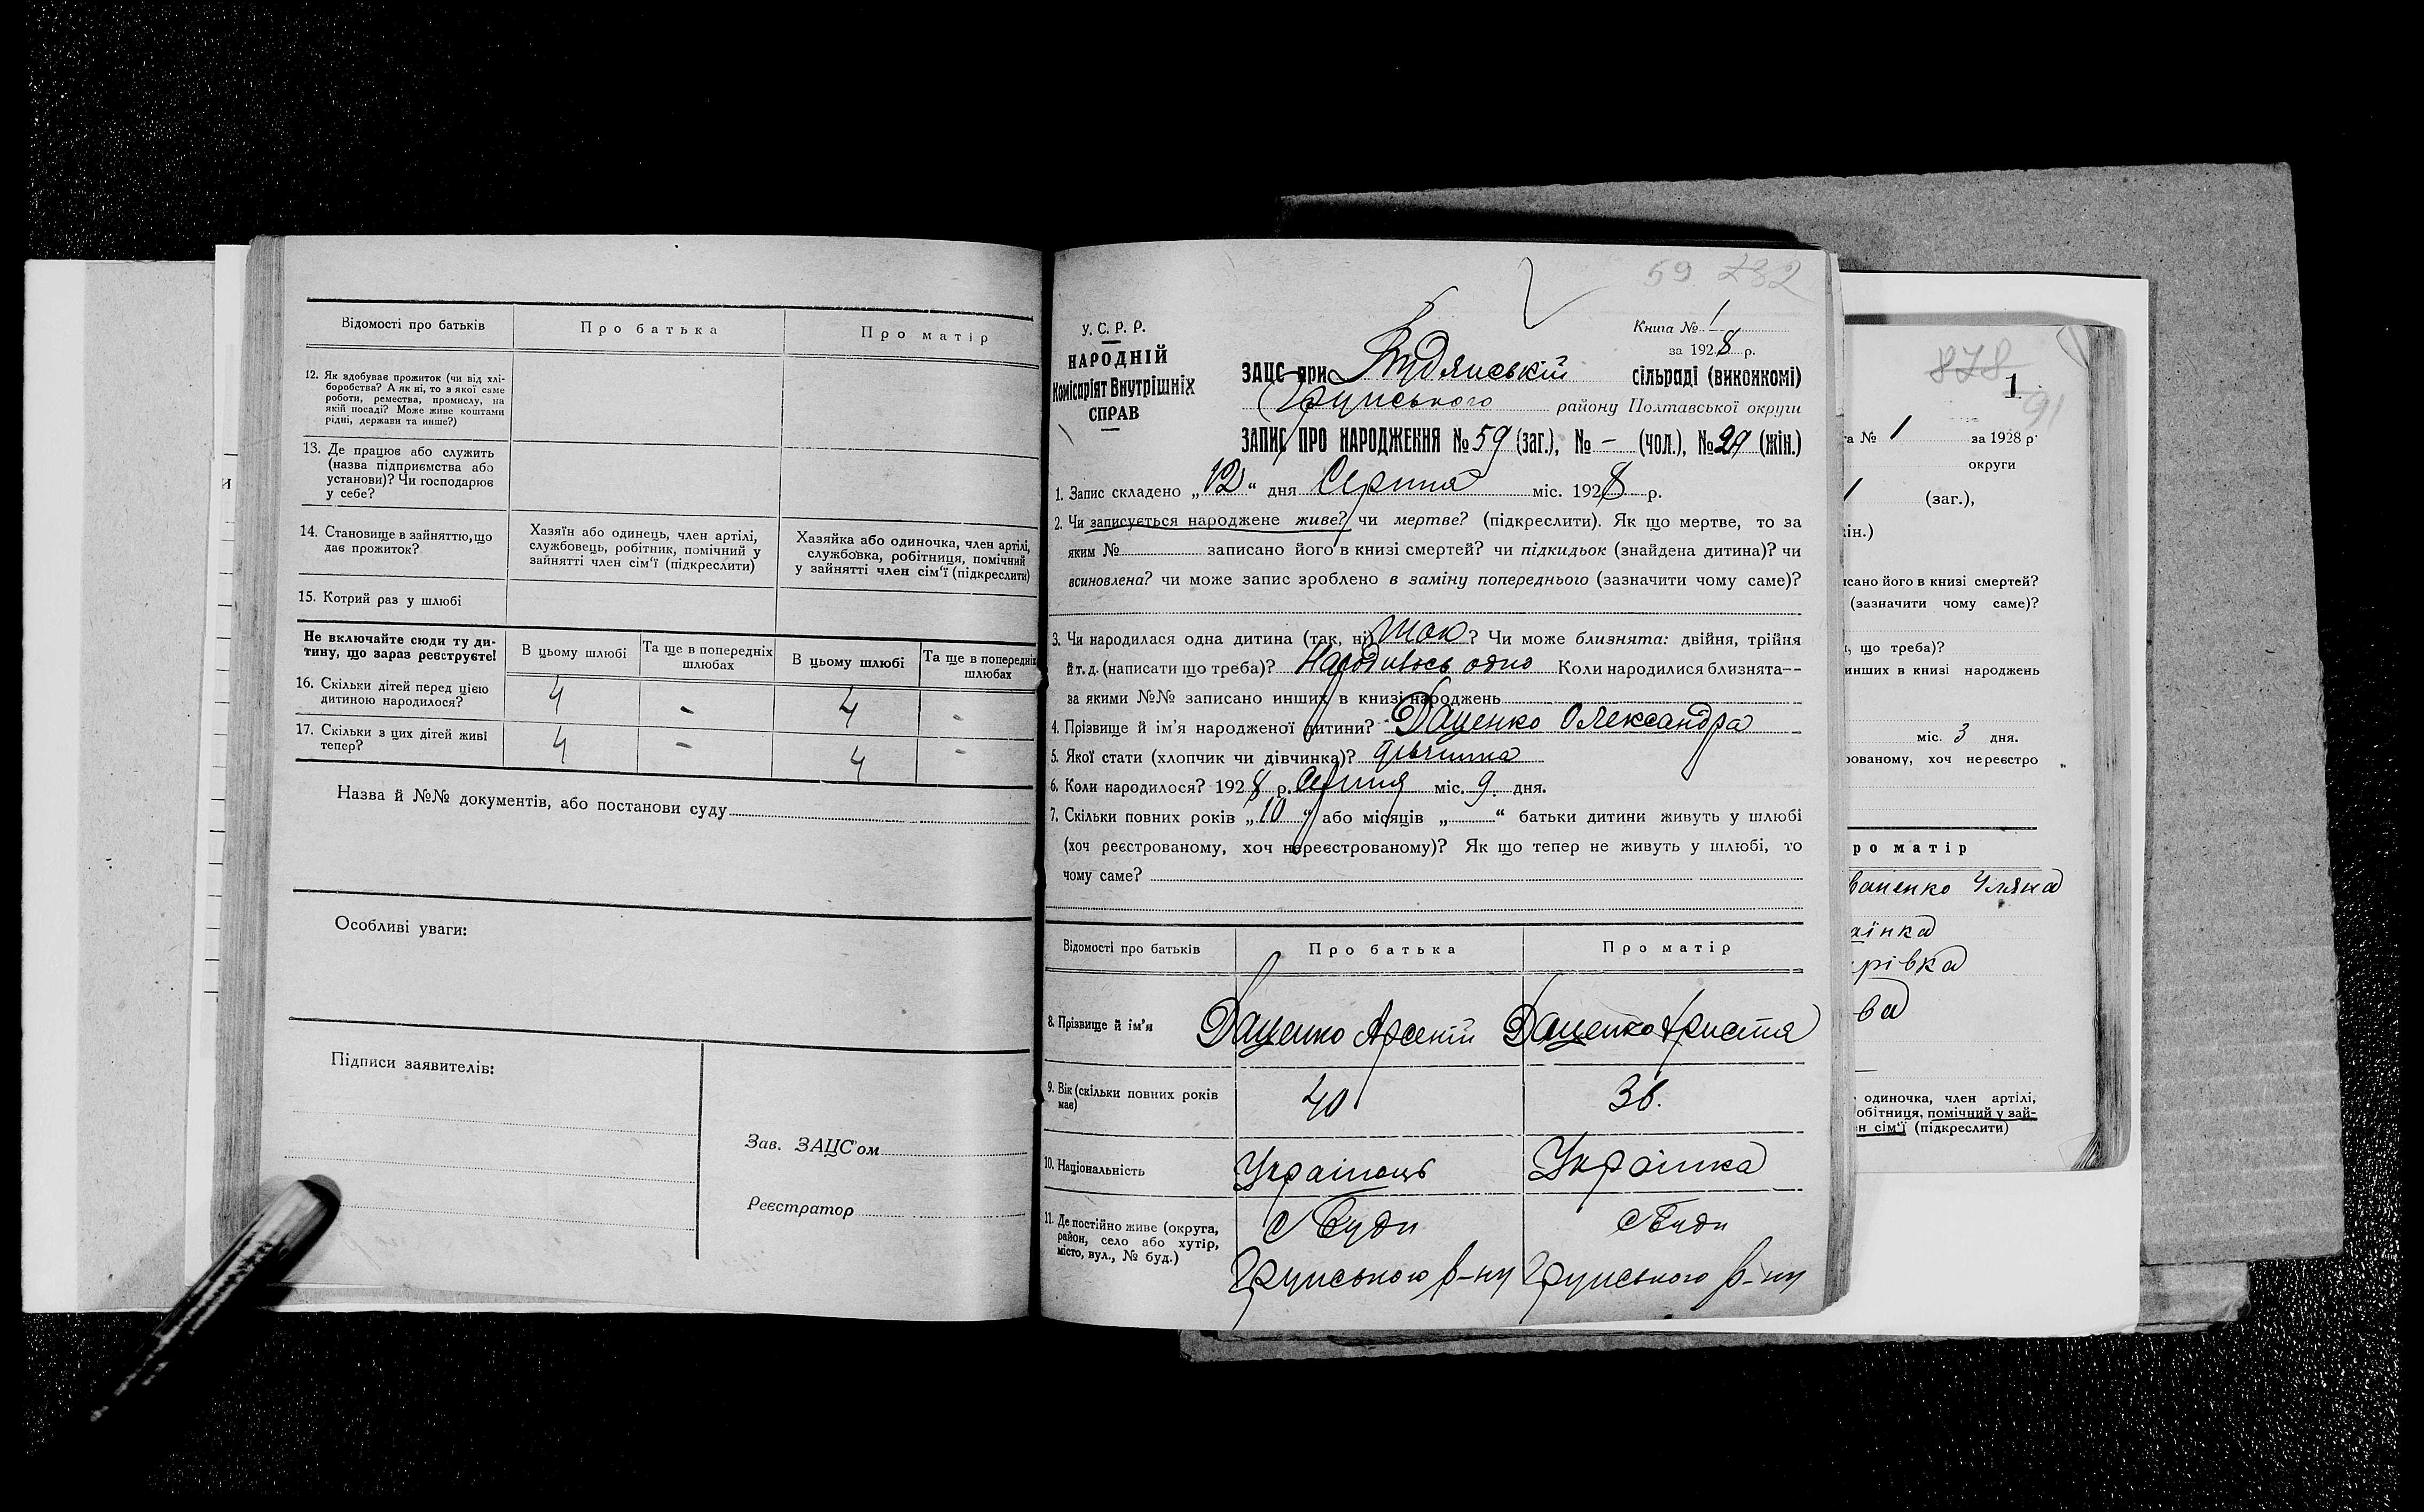 Відомості про батьків
Про батька
Про матір
12. Як здобуває прожиток (чи від хлі-
боробства? А як ні, то з якої саме
роботи, ремества, промислу, на
якій посаді? Може живе коштами
рідні, держави та инше?)
13. Де працює або служить
(назва підприємства або
установи)? Чи господарює
у себе?
14. Становище в зайняттю, що
дає прожиток?
Хазяїн або одинець, член артілі,
службовець, робітник, помічний у
зайнятті член сім'ї (підкреслити)
Хазяйка або одиночка, член артілі,
службовка, робітниця, помічний
у зайнятті член сім'ї (підкреслити)
15. Котрий раз у шлюбі
Не включайте сюди ту ди-
тину, що зараз реєструєте!
В цьому шлюбі
Та ще в попередніх
шлюбах
В цьому шлюбі
Та ще в попередніх
шлюбах
16. Скільки дітей перед цією
дитиною народилося?
4 - 4 -
17. Скільки з цих дітей живі
тепер?
4 - 4 -
Назва й №№ документів, або постанови суду
Особливі уваги:
Підписи заявителів:
Зав. ЗАЦС'ом
Реєстратор
59 782
У.С.Р.Р.
НАРОДНІЙ
Комісаріят Внутрішніх
СПРАВ
Книга № 1
за 1928 р.
ЗАЦС при Будянській сільраді (виконкомі)
Грунського району Полтавської округи
ЗАПИС ПРО НАРОДЖЕННЯ № 59 (заг.), № – (чол.), № 29 (жін.)
1. Запис складено „12“ дня Серпня міс. 1928 р.
2. Чи записується народжене живе? чи мертве? (підкреслити). Як що мертве, то за
яким № записано його в книзі смертей? чи підкидьок (знайдена дитина)? чи
всиновлена? чи може запис зроблено в заміну попереднього (зазначити чому саме)?
3. Чи народилася одна дитина (так, ні) Так? Чи може близнята: двійня, трійня
й т. д. (написати що треба)? Народилось одно Коли народилися близнята—
за якими №№ записано инших в книзі народжень
4. Прізвище й ім'я народженої дитини? Даценко Олександра
5. Якої стати (хлопчик чи дівчинка)? дівчинка
6. Коли народилося? 1928 р. Серпня міс. 9 дня.
7. Скільки повних років „10“ або місяців „ “ батьки дитини живуть у шлюбі
(хоч реєстрованому, хоч нереєстрованому)? Як що тепер не живуть у шлюбі, то
чому саме?
Відомості про батьків
Про батька
Про матір
8. Прізвище й ім'я
Даценко Арсеній
Даценко Христя
9. Вік (скільки повних років
має)
40
36.
10. Національність
Українець
Українка
11. Де постійно живе (округа,
район, село або хутір,
місто, вул., № буд.)
с Буди
Грунського р-ну
с Буди
Грунського р-ну
878
1
91
№ 1 за 1928 р.
округи
(заг.),
ін.)
исано його в книзі смертей?
(зазначити чому саме)?
, що треба)?
инших в книзі народжень
міс. 3 дня.
рованому, хоч нереєстро
ро матір
ваненко Уляна
аїнка
рівка
ва
одиночка, член артілі,
обітниця, помічний у зай-
н сім'ї (підкреслити)